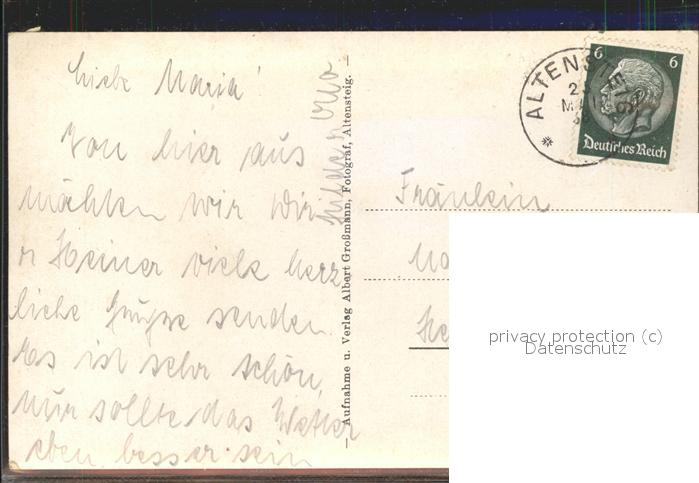 Liebe Maria!
Von hier aus
möchten wir Dir
u Heiner viele herz
liche Grüsse senden.
Es ist sehr schön,
nur sollte das Wetter
eben besser sein
— Aufnahme u. Verlag Albert Großmann, Fotograf, Altensteig. —
ALTENSTEIG
6 6
Deutsches Reich
Fräulein
privacy protection (c)
Datenschutz